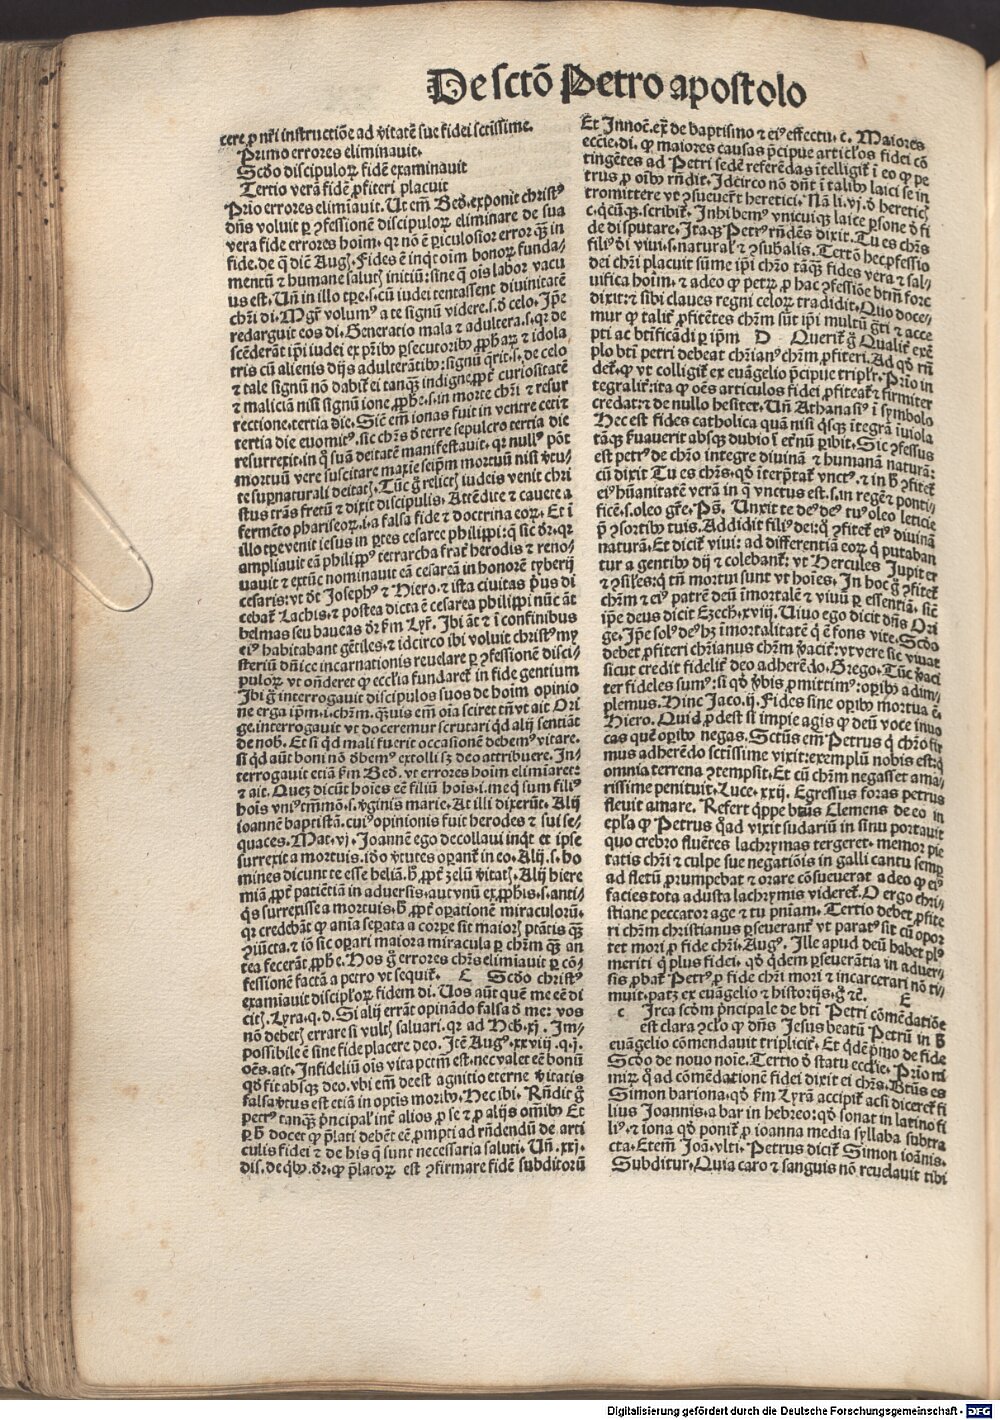 De sctō Petro apostolo
cere ꝓ nr̄i instructiōe ad v̄itatē sue fidei sctissime.
Primo errores eliminauit.
Scḋo discipuloꝝ fidē examinauit
Tertio verā fidē ꝓfiteri placuit
Prio errores elimīauit. Ut em̄ Bed. exponit christꝰ
dn̄s voluit ꝑ ꝯfessionē discipuloꝝ eliminare de sua
vera fide errores hoīm. qꝛ nō ē ꝑiculosior error qꝫ in
fide. de q̄ diē Augꝭ. Fides ē inqt oīm bonoꝝ funda-
mentū ⁊ humane salutꝭ initiū: sine q̄ oīs labor vacu
us est. Un̄ in illo tꝑe .s. cū iudei tentassent diuinitatē
chr̄i di. Mgr̄ volumꝰ a te signū videre .s. ḋ celo. Ip̄e
redarguit eos di. Generatio mala ⁊ adultera .s. qꝛ de
scēderāt ip̄i iudei ex pr̄ibꝰ ꝑsecutoribꝰ ꝓphaꝝ ⁊ idola
tris cū alienis dijs adulterātibꝰ: signū q̄rit .s. de celo
⁊ tale signū nō dabit̄ ei tanqꝫ indigne ꝓpt̄ curiositatē
⁊ maliciā nisi signū ione ꝓphe .s. in morte chr̄i ⁊ resur
rectione .tertia die. Sic em̄ ionas fuit in ventre ceti ⁊
tertia die euomitꝰ. sic chr̄s ḋ terre sepulcro tertia die
resurrexit. in q̄ suā deitatē manifestauit. qꝛ nullꝰ pōt
mortuū vere suscitare maxīe seip̄m mortuū nisi v̄tu-
te supnaturali deitatꝭ. Tūc ḡ relictꝭ iudeis venit chri
stus trās fretū ⁊ dixit discipulis. Attēdite ⁊ cauete a
fermēto phariseoꝝ .i. a falsa fide ⁊ doctrina eoꝝ. Et ī
illo tꝑe venit iesus in ꝑtes cesaree philippi: q̄ sic dr̄. qꝛ
ampliauit eā philippꝰ tetrarcha frat̄ herodis ⁊ reno-
uauit ⁊ extūc nominauit eā cesareā in honorē tyberij
cesaris: vt dt̄ Josephꝰ ⁊ Hiero. ⁊ ista ciuitas pꝰus di
cebat̄ Lachis. ⁊ postea dicta ē cesarea philippi nūc āt
belmas seu baueas dr̄ ẜm Lyr̄. Ibi āt ⁊ ī confinibus
eiꝰ habitabant gētiles. ⁊ idcirco ibi voluit christꝰ my
steriū dn̄ice incarnationis reuelare ꝑ ꝯfessionē disci-
puloꝝ vt on̄deret ꝙ eccl̄ia fundaret̄ in fide gentium
Ibi ḡ interrogauit discipulos suos de hoīm opinio
ne erga ip̄m .i. chr̄m. qꝫuis em̄ oīa sciret tn̄ vt ait Ori
ge. interrogauit vt doceremur scrutari qd alij sentiāt
de nob̄. Et si qd mali fuerit occasionē debemꝰ vitare.
si qd aūt boni nō ḋbemꝰ extolli sꝫ deo attribuere. In-
terrogauit etiā ẜm Bed. vt errores hoīm elimīaret:
⁊ ait. Quez dicūt hoīes eē filiū hoīs .i. me q̄ sum filiꝰ
hoīs vniꝰ tm̄mō .s. v̄ginis marie. At illi dixerūt. Alij
ioannē baptistā. cuiꝰ opinionis fuit herodes ⁊ sui se-
quaces. Mat. vj. Joannē ego decollaui inqt et ipse
surrexit a mortuis. iḋo v̄tutes oꝑant̄ in eo. Alij .s. ho
mines dicunt te esse heliā. h̄ ꝓpt̄ zelū v̄itatꝭ. Alij hiere
miā ꝓpt̄ patiētiā in aduersis. aut vnū ex ꝓphis .s. anti-
q̄s surrexisse a mortuis. h̄ ꝓpt̄ oꝑationē miraculorū.
qꝛ credebāt ꝙ aīa seꝑata a corꝑe sit maiorꝭ ptātis qꝫ
ꝯiūcta. ⁊ iō sic oꝑari maiora miracula ꝑ chr̄m qꝫ an
tea fecerāt ꝓphe. Hos ḡ errores chr̄s elimiauit ꝑ cō-
fessionē factā a petro vt sequit̄. C Scḋo christꝰ
examiauit discipl̄oꝝ fidem di. Uos aūt quē me eē di
citꝭ. Lyra. q. d. Si alij errāt opinādo falsa ḋ me: vos
nō debetꝭ errare si vultꝭ saluari. qꝛ ad Heb. xj. Im-
possibile ē sine fide placere deo. Itē Augꝰ. xxviij. q. j.
oēs. ait. Infideliū oīs vita pctm̄ est. nec valet eē bonū
qḋ fit absqꝫ deo. vbi em̄ deest agnitio eterne v̄itatis
falsa v̄tus est etiā in optis moribꝰ. Hec ibi. Rn̄dit ḡ
petrꝰ tanqꝫ pꝛncipal̓ int̄ alios ꝓ se ⁊ ꝓ alijs om̄ibꝰ Et
ꝑ h̄ docet ꝙ p̄lati debēt eē ꝓmpti ad rn̄dendū de arti
culis fidei ⁊ de his q̄ sunt necessaria saluti. Un̄ .xxj.
dis. de qbꝰ. dr̄. ꝙ p̄latoꝝ est ꝯfirmare fidē subditorū
Et Innoc̄. ex̄ de baptismo ⁊ eiꝰ effectu. c. Maiores
eccl̄ie. di. ꝙ maiores causas p̄cipue articl̓os fidei cō
tingētes ad Petri sedē referēdas ītelligit̄ ī eo ꝙ pe
trus ꝓ oībꝰ rn̄dit. Idcirco nō dn̄t ī talibꝰ laici se in
tromittere vt ꝯsueuert̄ heretici. Nā li. vj. ḋ heretic̄
c. qcūqꝫ. scribit̄. Inhibemꝰ vnicuiqꝫ laice ꝑsone ḋ fi
de disputare. Itaqꝫ Petrꝰ rn̄dēs dixit. Tu es chr̄s
filiꝰ ḋi viui .s. natural̓ ⁊ ꝯsubalis. Tertō hec ꝓfessio
dei chr̄i placuit sūme ip̄i chr̄o tāqꝫ fides vera ⁊ sal-
uifica hoīm. ⁊ adeo ꝙ petrꝝ ꝓ hac ꝯfessiōe btm̄ fore
dixit: ⁊ sibi claues regni celoꝝ tradidit. Quo doce-
mur ꝙ talit̄ ꝓfitētes chr̄m sūt ip̄i multū gr̄ti ⁊ acce
pti ac btīficādi ꝑ ip̄m D Querit̄ ḡ Qualit̄ exē
plo bti petri debeat chr̄ianꝰ chr̄m ꝓfiteri. Ad qḋ rn̄
det̄. ꝙ vt colligit̄ ex euāgelio p̄cipue tripl̓r. Prio in
tegralit̄: ita ꝙ oēs articulos fidei ꝓfiteat̄ ⁊ firmiter
credat: ⁊ de nullo hesitet. Un̄ Athanasiꝰ ī symbolo
Hec est fides catholica quā nisi qsqꝫ ītegrā īuiola
tāqꝫ ẜuauerit absqꝫ dubio ī et̄nū ꝑibit. Sic ꝯfessus
est petrꝰ de chr̄o integre diuinā ⁊ humanā naturā:
cū dixit Tu es chr̄s. qḋ īterp̄tat̄ vnctꝰ. ⁊ in h̄ ꝯfitet̄
eiꝰ hūanitatē verā in q̄ vnctus est .s. in regē ⁊ ponti-
ficē .s. oleo gr̄e. Ps̄. Unxit te deꝰ deꝰ tuꝰ oleo leticie
p̄ ꝯsortibꝰ tuis. Addidit filiꝰ dei: q̄ ꝯfitet̄ eiꝰ diuinā
naturā. Et dicit̄ viui: ad differentiā eoꝝ q̄ putaban
tur a gentibꝰ dij ⁊ colebant̄: vt Hercules Jupiter
⁊ ꝯsil̓es: q̄ tn̄ mortui sunt vt hoīes. In hoc ḡ ꝯfitet̄
chr̄m ⁊ eiꝰ patrē deū īmortalē ⁊ viuū ꝑ essentiā. sicē
ip̄e deus dicit Ezech. xviij. Uiuo ego dicit dn̄s Ori
ge. Ip̄e solꝰ deꝰ hꝫ īmortalitatē q̄ ē fons vite. Scḋo
debet ꝓfiteri chr̄ianus chr̄m v̄acit̄: vt vere sic viuat
sicut credit fidelit̄ deo adherēdo. Grego. Tūc v̄aci
ter fideles sumꝰ: si qḋ v̄bis ꝓmittimꝰ: oꝑibꝰ adim-
plemus. Hinc Jaco. ij. Fides sine oꝑibꝰ mortua ē.
Hiero. Quid ꝓdest si impie agis ꝙ deū voce inuo
cas quē oꝑibꝰ negas. Sctūs em̄ Petrus q̄ chr̄o fir
mus adherēdo sctissime vixit: exemplū nobis est: q̄
omnia terrena ꝯtempsit. Et cū chr̄m negasset ama-
rissime penituit. Luce. xxij. Egressus foras petrus
fleuit amare. Refert q̄ppe btūs Clemens de eo in
epl̓a ꝙ Petrus q̄ad vixit sudariū in sinu portauit
quo crebro fluētes lachrymas tergeret. memor pie
tatis chr̄i ⁊ culpe sue negatiōis in galli cantu semꝑ
ad fletū ꝓrumpebat ⁊ orare cōsueuerat adeo ꝙ eiꝰ
facies tota adusta lachrymis videret̄. O ergo chri-
stiane peccator age ⁊ tu pnīam. Tertio debet ꝓfite
ri chr̄m christianus ꝑseuerant̄ vt paratꝰ sit cū opor
tet mori ꝓ fide chr̄i. Augꝰ. Ille apud deū habet plꝰ
meriti q̄ plus fidei. qḋ q̄dem ꝑseuerātia in aduer-
sis ꝓbat̄ Petrꝰ ꝓ fide chr̄i mori ⁊ incarcerari nō ti-
muit. patꝫ ex euāgelio ⁊ historijs. ḡ ⁊c̄. E
c Irca scḋm pꝛncipale de bti Petri cōmēdatiōe
est clara ꝯcl̓o ꝙ dn̄s Jesus beatū Petrū in h̄
euāgelio cōmendauit triplicit̄. Et q̄dē pꝛmo de fide
Scḋo de nouo noīe. Tertio ḋ statu eccl̄ie. Prio ni
mirꝝ q̄ ad cōmēdationē fidei dixit ei chr̄s. Btūs es
Simon bariona. qḋ ẜm Lyrā accipit̄ acsi diceret̄ fi
lius Joannis. a bar in hebreo: qḋ sonat in latino fi
liꝰ. ⁊ iona qḋ ponit̄ ꝓ ioanna media syllaba subtra
cta. Etem̄ Joā. vlti. Petrus dicit̄ Simon ioānis.
Subditur. Quia caro ⁊ sanguis nō reuelauit tibi
Digitalisierung gefördert durch die Deutsche Forschungsgemeinschaft - DFG